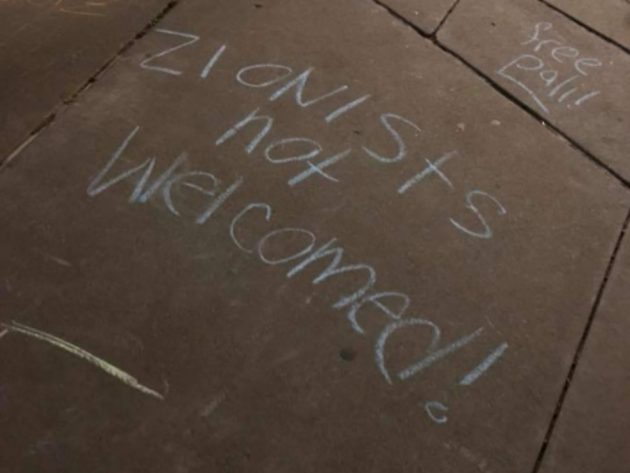 ZIONISTS
not
Welcomed!
free
Pali!